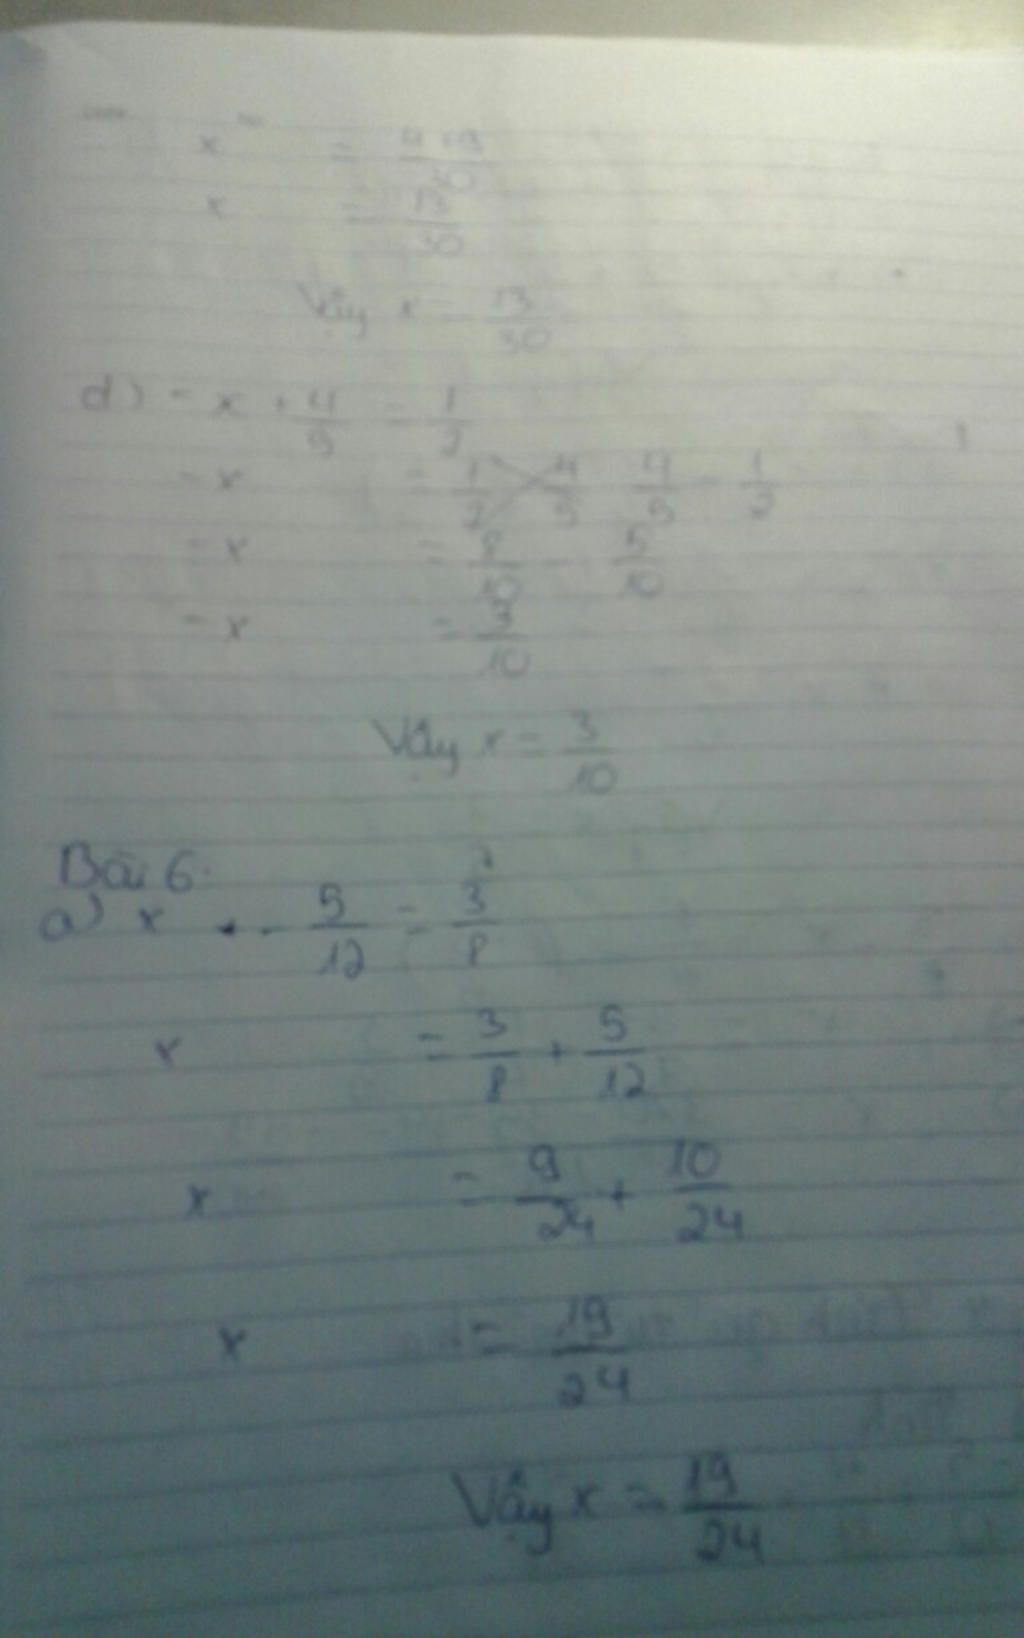 x = 4+9/30
x = 13/30
Vậy x = 13/30
d) - x + 4/5 = 1/2
- x = 4/5 - 1/2
- x = 8/10 - 5/10
- x = 3/10
Vậy x = 3/10
Bài 6.
a) x - 5/12 = 3/8
x = 3/8 + 5/12
x = 9/24 + 10/24
x = 19/24
Vậy x = 19/24